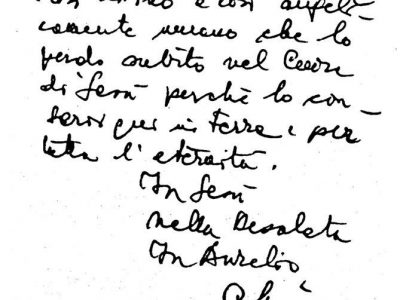 è così angeli-
camente umano che lo
perdo subito nel Cuore
di Gesù perchè lo con-
servi qui in terra e per
tutta l'eternità.
In Gesù
nella Desolata
In Aurelio